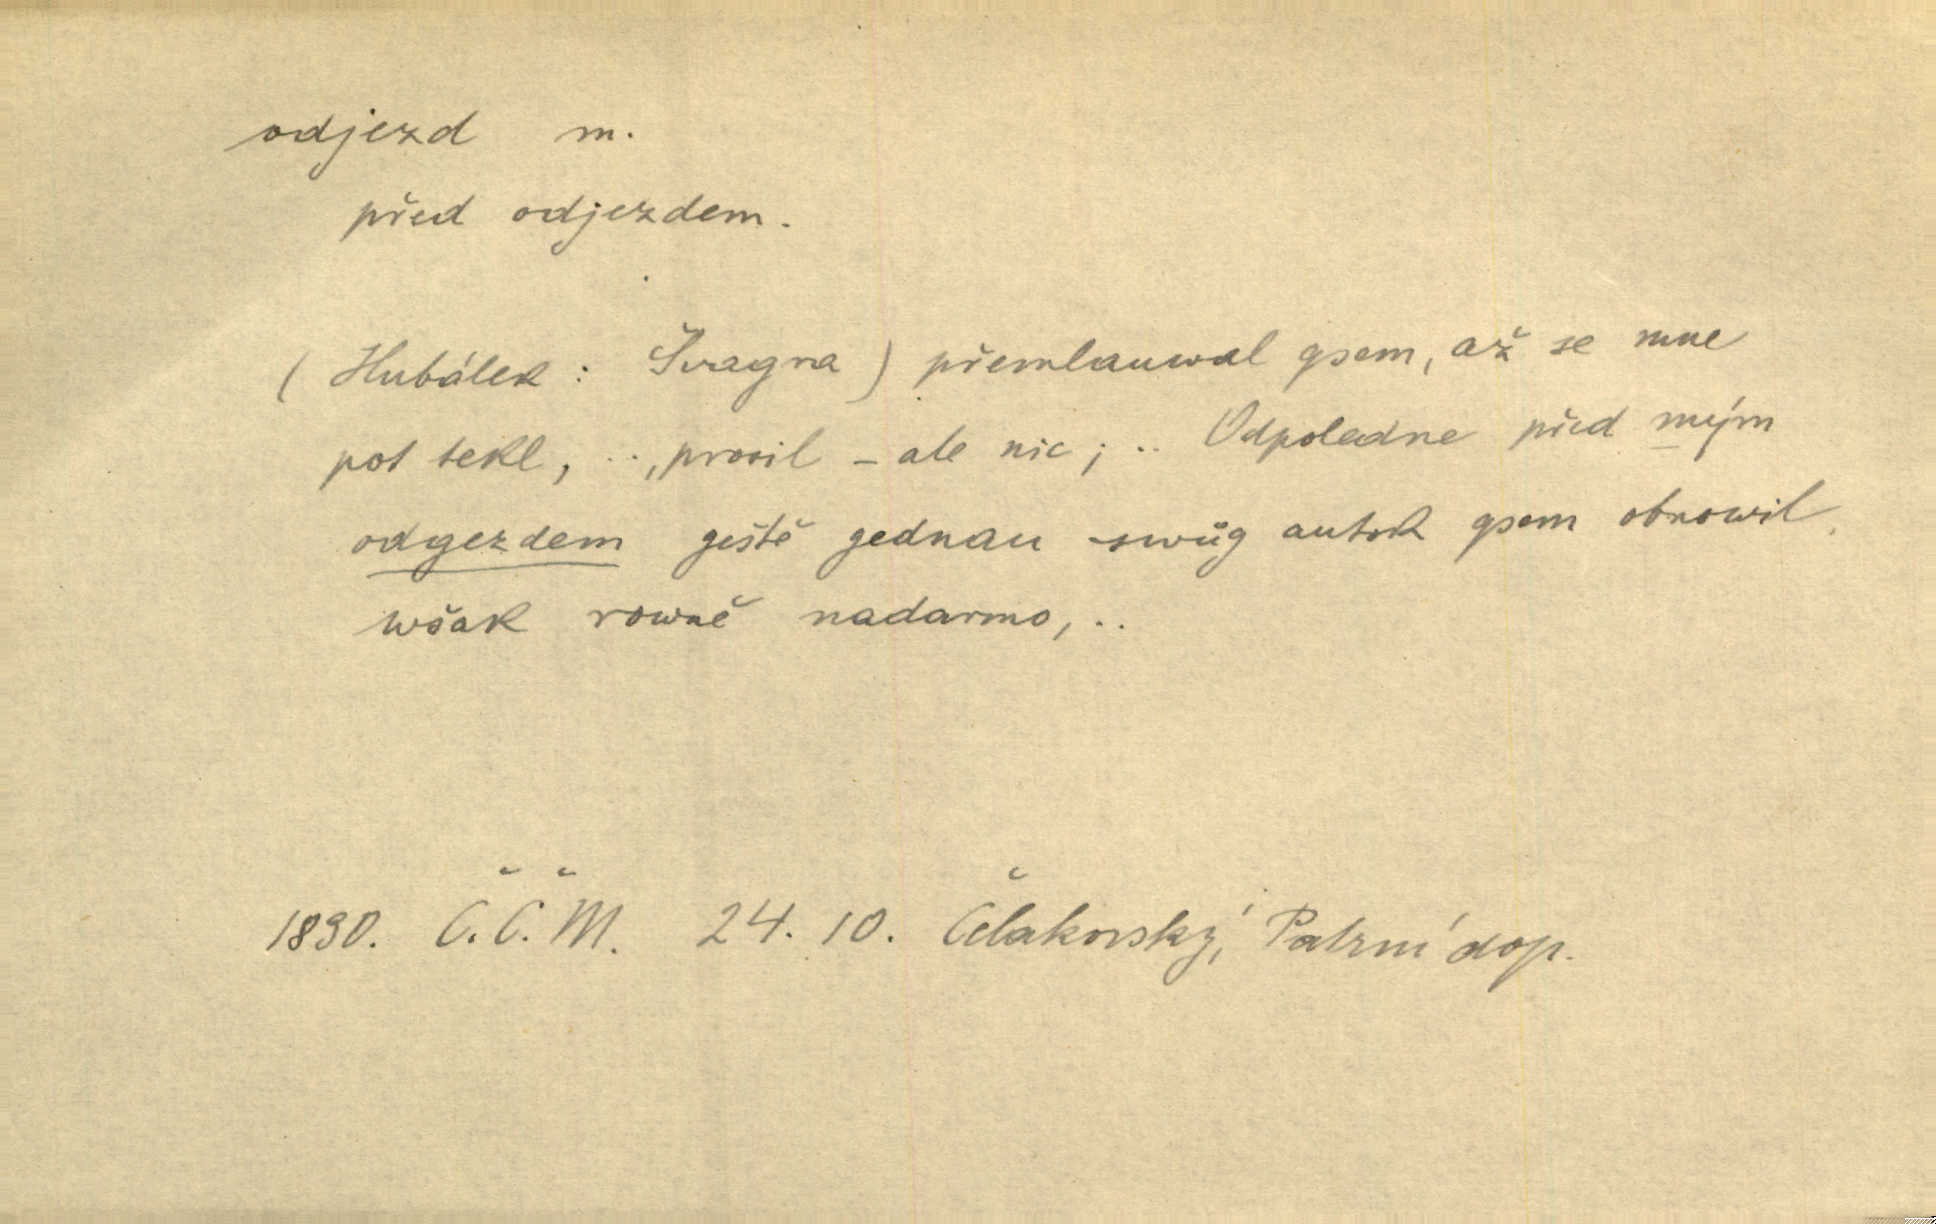 odjezd m.
před odjezdem.
( Hubálek : Švagra ) přemlauwal gsem, až se mne
pot tekl, .., prosil – ale nic ; .. Odpoledne před mým
odgezdem geště gednau swůg autok gsem obnowil,
wšak rowně nadarmo, ..
1830. Č.Č.M. 24. 10. Čelakovský, Patrní dop.